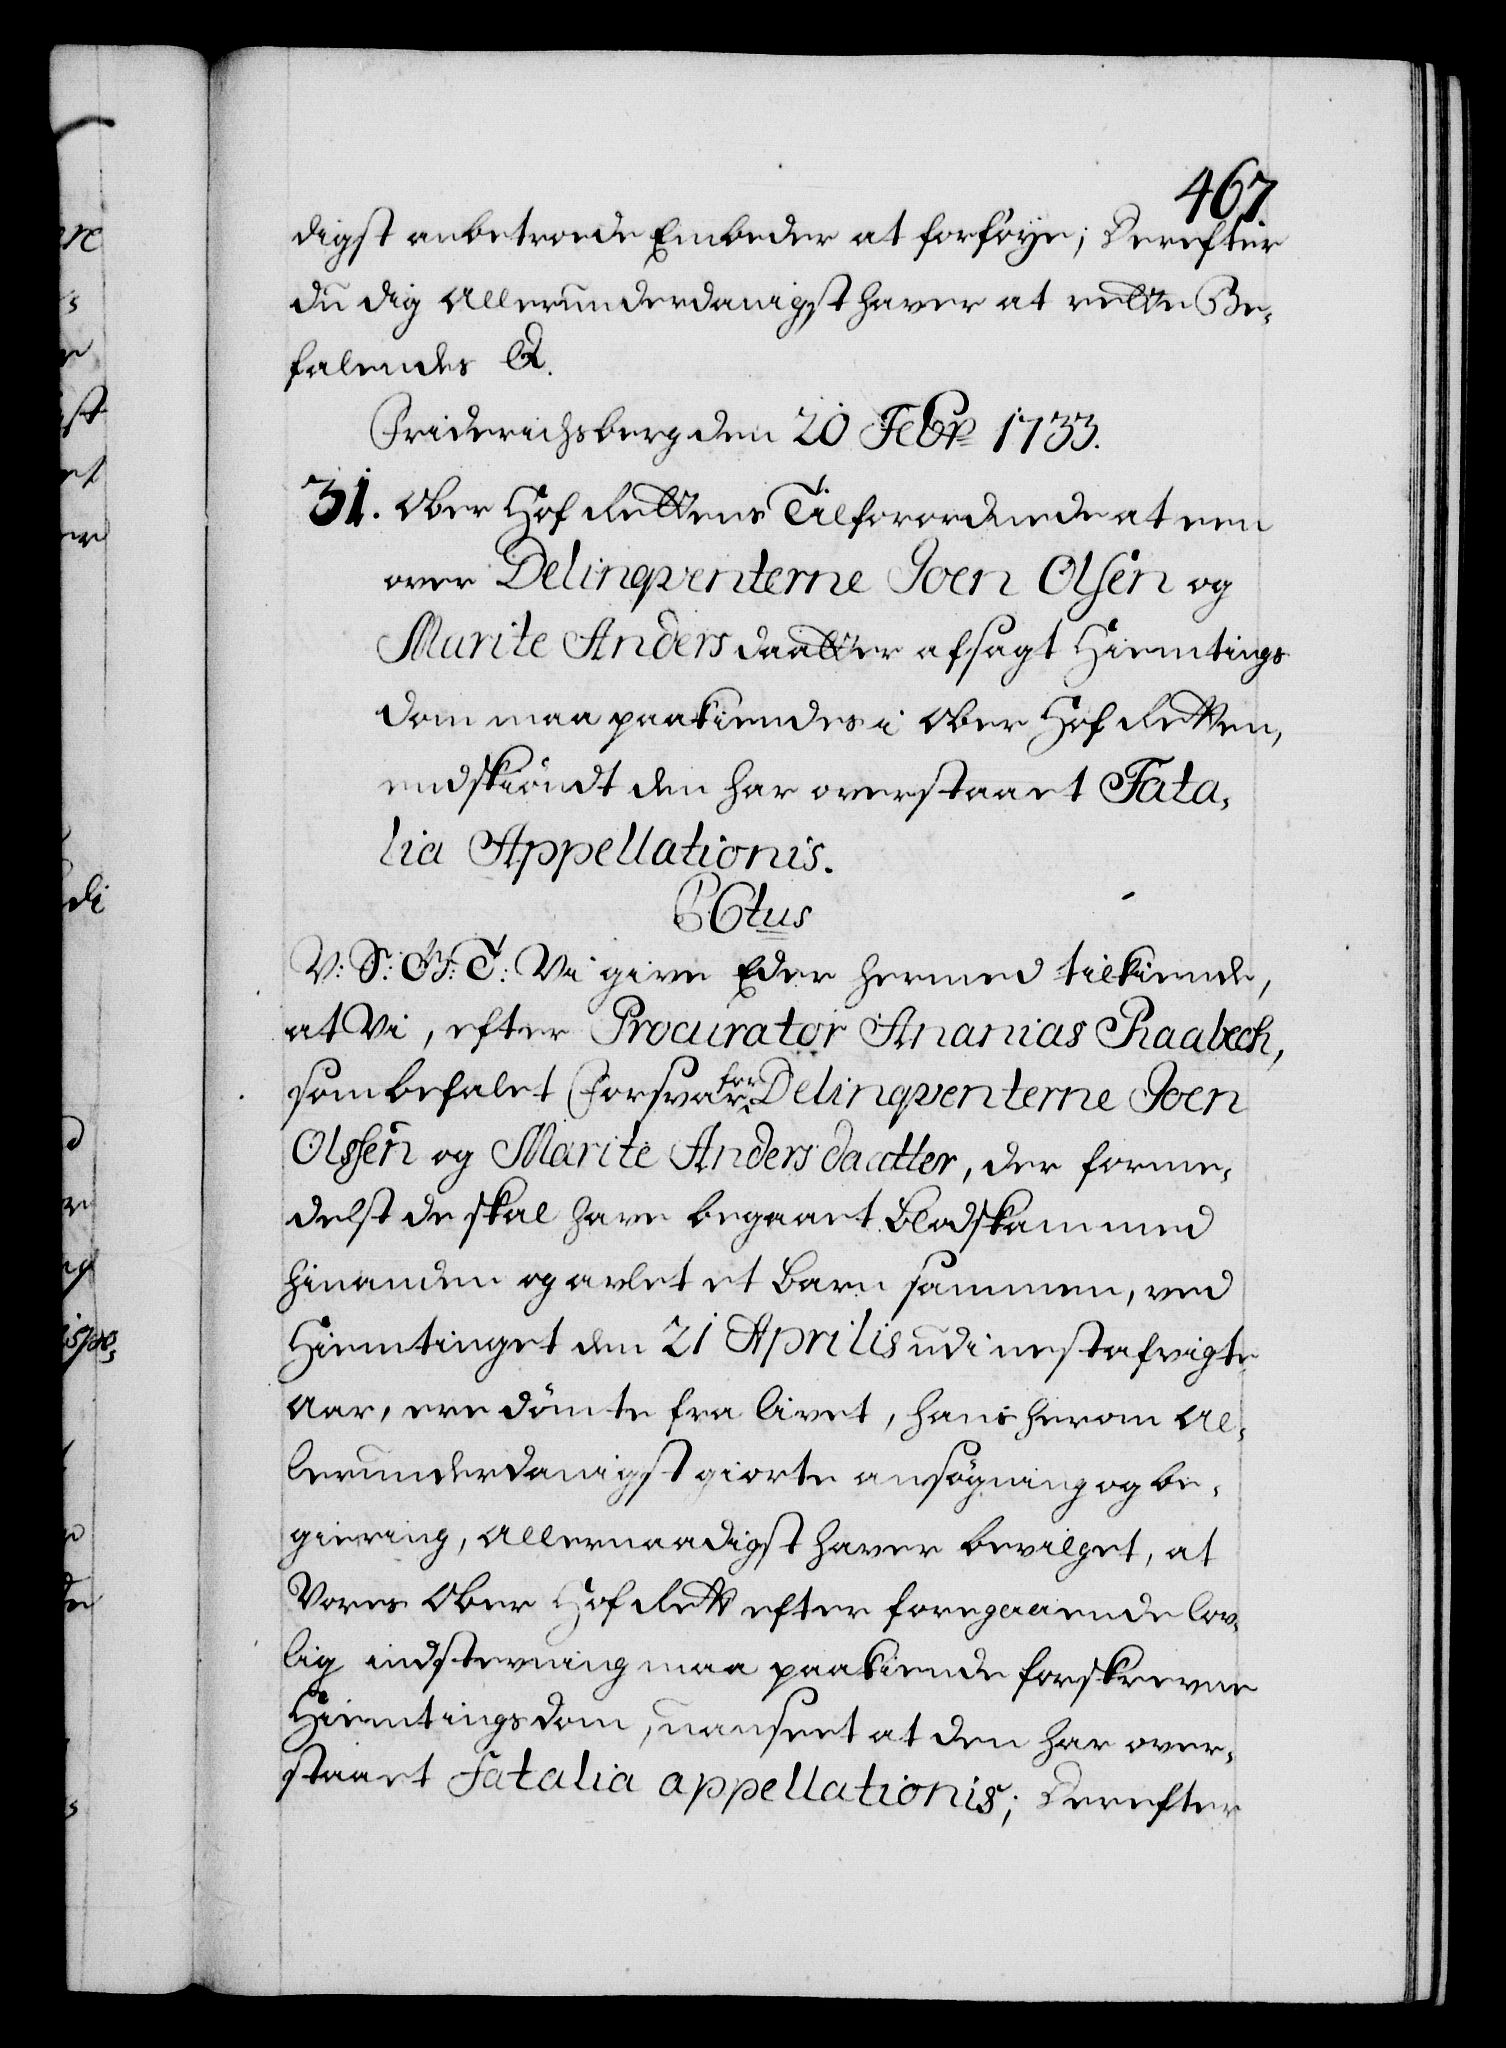 467.
digst anbetroede Embeder at forföye; Derefter
du dig Allerunderdanigst haver at rette Be-
falendes &.
Friderichsberg den 20 Febr 1733.
31. Ober Hof Rettens Tilforordnede at een
over Delinqventerne Joen Olsen og
Murite Anders daatter afsagt Hiemtings
dom maa paakiendes i Ober Hof Retten,
endskiöndt den har overstaaet Fata-
lia Appellationis.
C6tus
V: S: G: T: Vi give Eder hermed tilkiende,
at Vi, efter Procurator Ananias Raabech,
som befalet Forsvar for Delinqventerne Joen
Olssen og Marite Anders daatter, der forme-
delst de skal have begaaet Blodskam med
hinanden og avlet et Barn sammen, ved
Hiemtinget den 21 Aprilis udi nestafvigte
Aar, ere dömte fra livet, hans herom Al-
lerunderdanigst giorte ansögning og be-
giering, Allernaadigst haver bevilget, at
Vores Ober Hof Rett efter foregaaende lov-
lig indstevning maa paakiende forskrevne
Hiemtings dom, uanseet at den har over-
staaet Fatalia appellationis; Derefter